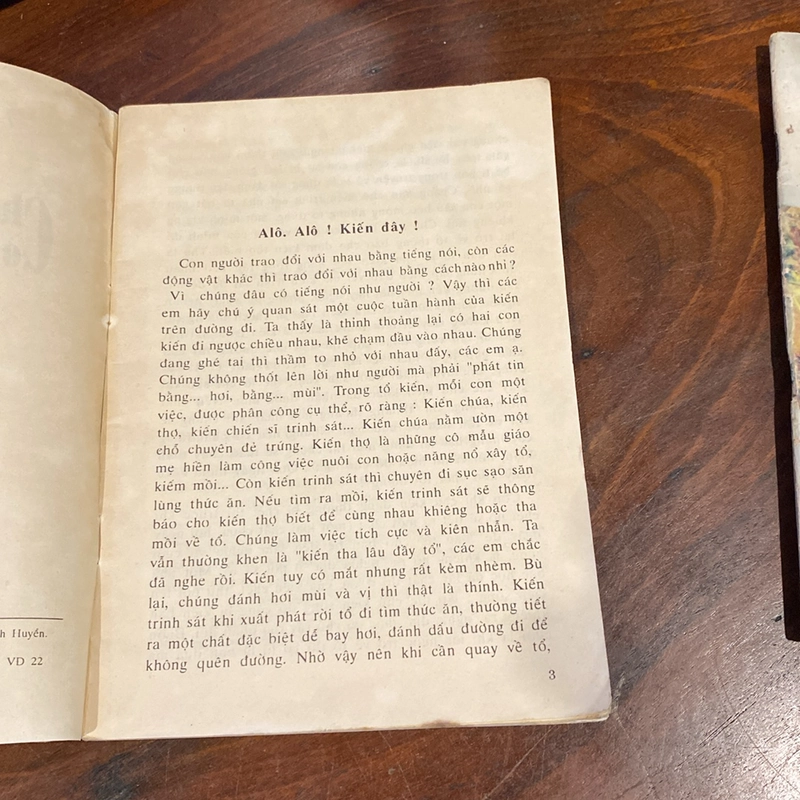 Alô. Alô ! Kiến đây !
Con người trao đổi với nhau bằng tiếng nói, còn các
động vật khác thì trao đổi với nhau bằng cách nào nhỉ ?
Vì chúng đâu có tiếng nói như người ? Vậy thì các
em hãy chú ý quan sát một cuộc tuần hành của kiến
trên đường đi. Ta thấy là thỉnh thoảng lại có hai con
kiến đi ngược chiều nhau, khẽ chạm đầu vào nhau. Chúng
đang ghé tai thì thầm to nhỏ với nhau đấy, các em ạ.
Chúng không thốt lên lời như người mà phải "phát tin
bằng... hơi, bằng... mùi". Trong tổ kiến, mỗi con một
việc, được phân công cụ thể, rõ ràng : Kiến chúa, kiến
thợ, kiến chiến sĩ trinh sát... Kiến chúa nằm ườn một
chỗ chuyên đẻ trứng. Kiến thợ là những cô mẫu giáo
mẹ hiền làm công việc nuôi con hoặc năng nổ xây tổ,
kiếm mồi... Còn kiến trinh sát thì chuyên đi sục sạo săn
lùng thức ăn. Nếu tìm ra mồi, kiến trinh sát sẽ thông
báo cho kiến thợ biết để cùng nhau khiêng hoặc tha
mồi về tổ. Chúng làm việc tích cực và kiên nhẫn. Ta
vẫn thường khen là "kiến tha lâu đầy tổ", các em chắc
đã nghe rồi. Kiến tuy có mắt nhưng rất kèm nhèm. Bù
lại, chúng đánh hơi mùi và vị thì thật là thính. Kiến
trinh sát khi xuất phát rời tổ đi tìm thức ăn, thường tiết
ra một chất đặc biệt dễ bay hơi, đánh dấu đường đi để
không quên đường. Nhờ vậy nên khi cần quay về tổ,
3
h Huyền.
VD 22